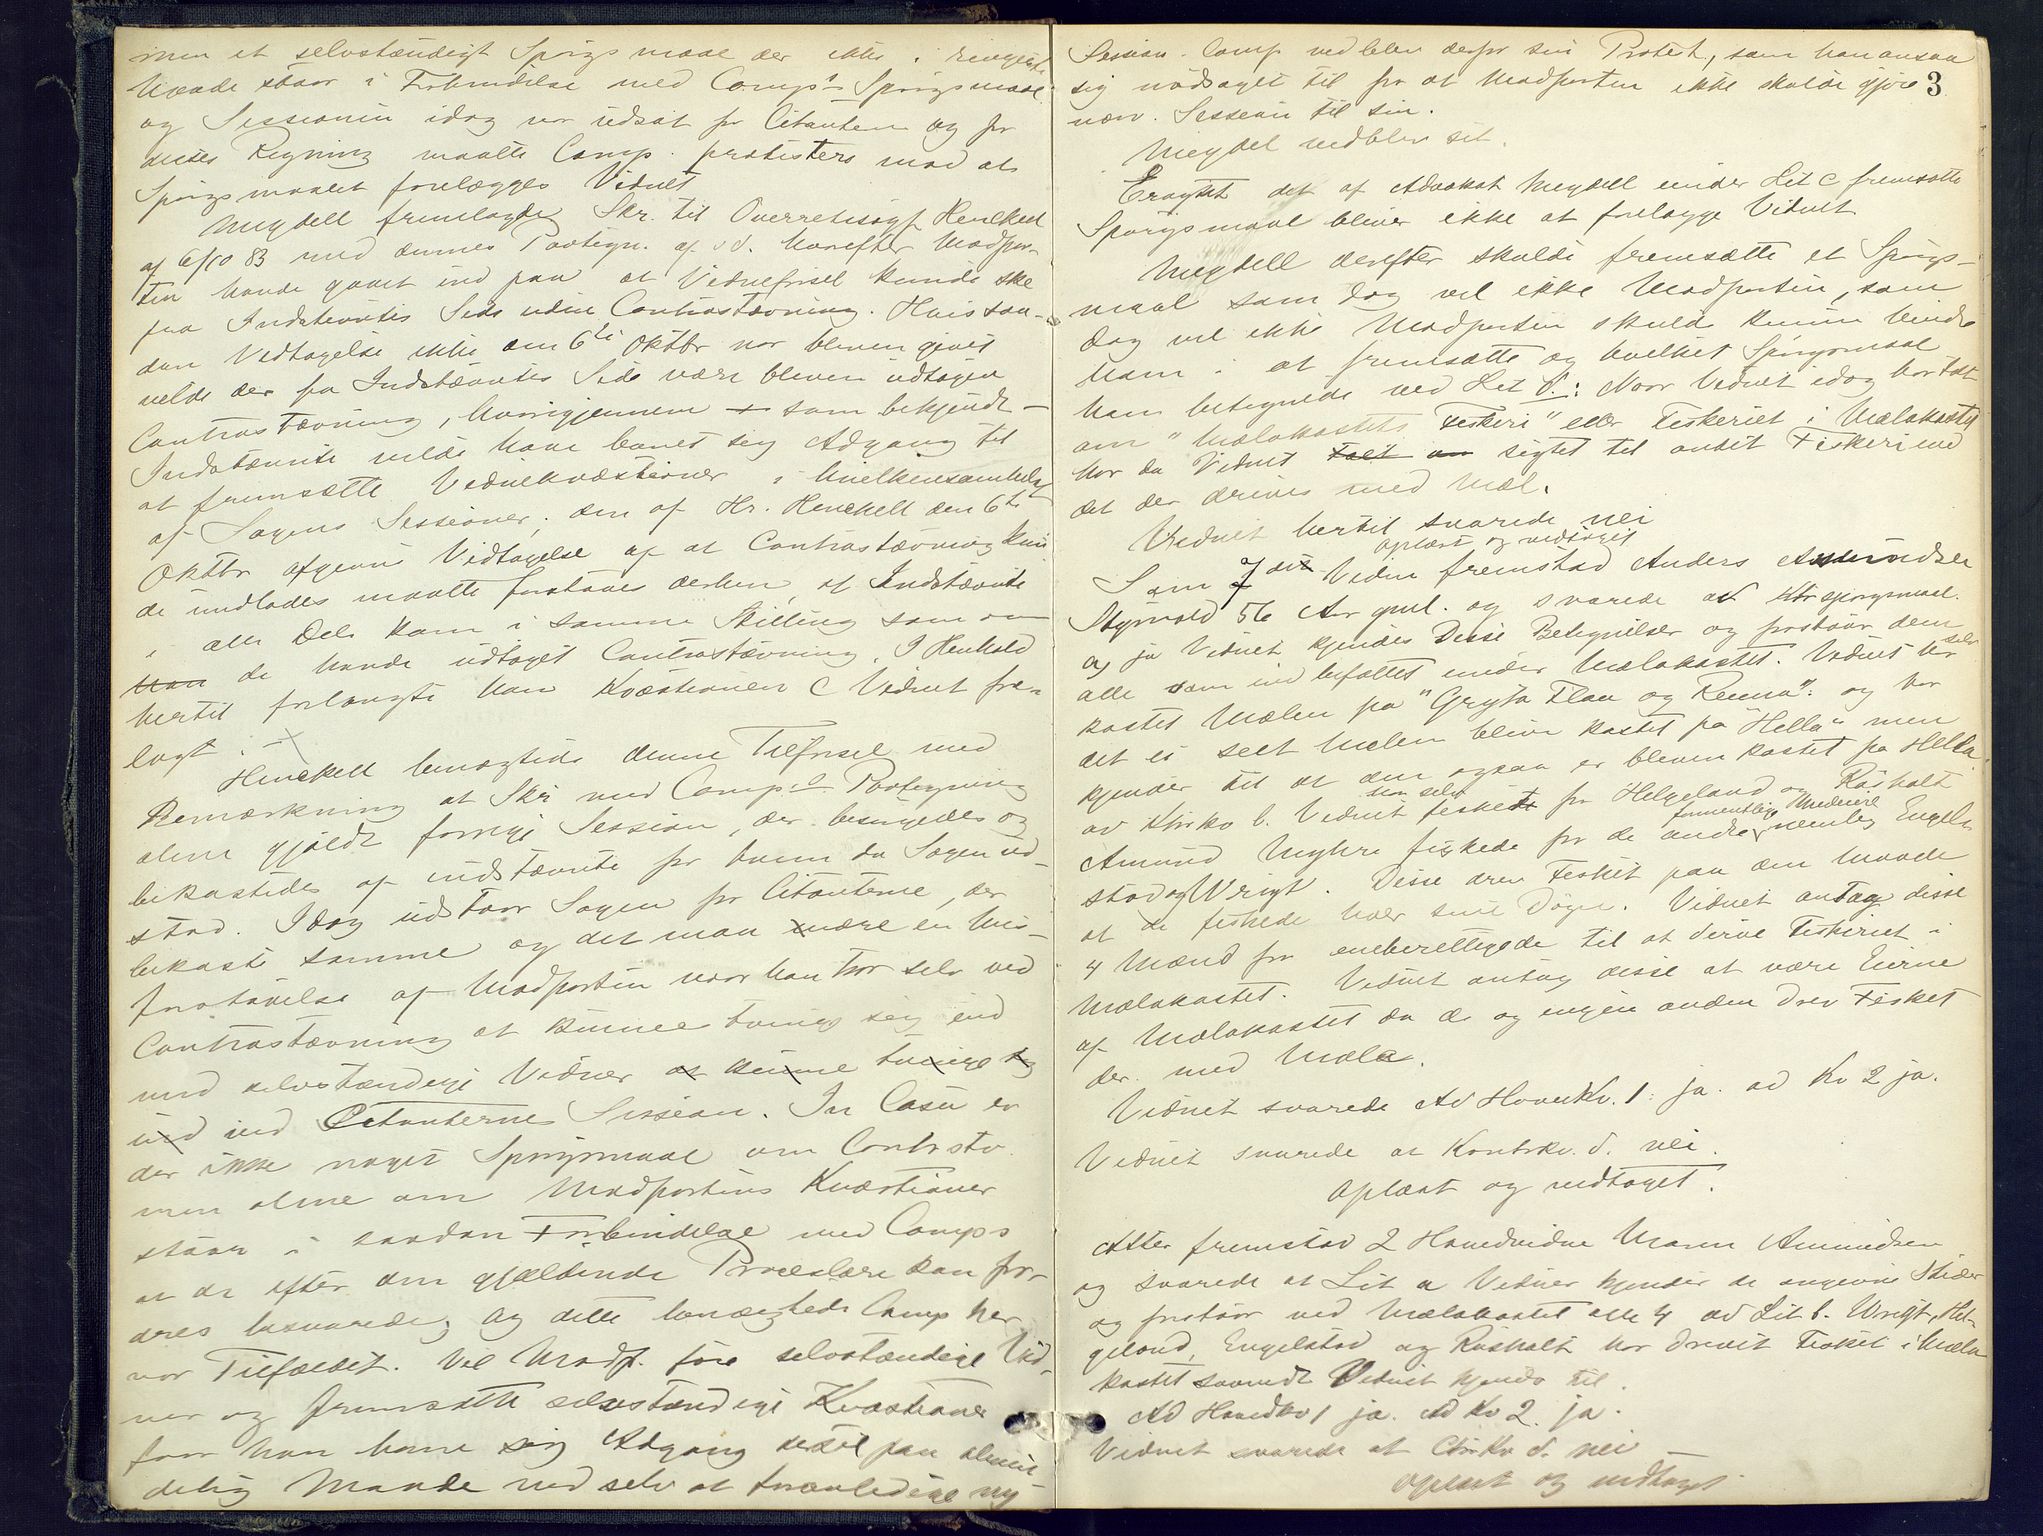 men et selvstændigt Spørgsmaal der ikke i ringeste
Maade staar i Forbindelse med Comp's Spørgsmaal
og Sessionen idag var udsat for Citanten og for
dennes Regning maatte Comp. protestere mod at
Spørgsmaalet forelægges Vidnet
Meydell fremlagde Skr. til Overretssagf Henckell
af 6/10 83 med dennes Paategn. af s d. hvorefter Modpar-
ten havde gaaet ind paa at Vidneførsel kunde ske
fra Indstevntes Side uden Contrastævning. Hvis saa-
dan Vedtagelse ikke den 6te Oktbr var bleven givet
vilde der fra Indstævntes Side være bleven udtagen
Contrastævning, hvorigjennem som bekjendt
Indstævnte vilde have banet sig Adgang til
at fremsætte Vidnekvæstioner i hvilkensomhelst
af Sagens Sessioner; den af Hr. Henckell den 6te
Oktbr afgivne Vedtagelse af at Contrastævning kun-
de undlades maatte forstaaes derhen, at Indstævnte
i alle Dele kom i samme Stilling som om
han de havde udtaget Contrastævning. I Henhold
hertil forlangte han Kvæstionen C Vidnet fore-
lagt.
Henckell benægtede denne Tilførsel med
Bemærkning at Skr med Comp.s Paategning
alene gjaldt forrige Session, der besørgedes og
bekostedes af indstævnte for hvem da Sagen ud-
stod. Idag udstaar Sagen for Citanterne, der
bekoste samme og det maa være en Mis-
forstaaelse af Modparten naar han tror selv ved
Contrastævning at kunne tvinge sig ind
med selvstændige Vidner at kunne tvinge sig
ind ind Citanternes Session. In Casu er
der ikke noget Spørgsmaal om Contrastv.
men alene om Modpartens Kvæstioner
staar i saadan Forbindelse med Comps
at de efter den gjældende Proceslære kan for-
dres besvarede; og dette benægtede Comp her
var Tilfældet. Vil Modp. føre selvstændige Vid-
ner og fremsætte selvstændige Kvæstioner
faar han bane sig Adgang dertil paa almin-
delig Maade ved selv at foranledige ny
Session. Comp vedblev derfor sin Protest, som han ansaa
sig nødsaget til for at Modparten ikke skulde gjøre 3
nærv. Session til sin.
Meydel vedblev sit.
Eragtet det af Advokat Meydell under Lit C fremsatte
Spørgsmaal bliver ikke at forelægge Vidnet
Meydell derefter skulde fremsætte et Spørgs-
maal som dog vel ikke Modparten, som
dog vel ikke Modparten skulde kunne hindre
ham i at fremsætte og hvilket Spørgsmaal
han betegnede ved Lit d.: Naar Vidnet idag har talt
om "Mælakastets Fiskeri" eller Fiskeriet i Mælakastet
har da Vidnet talt om sigtet til andet Fiskeri end
det der drives med Mæl.
Vidnet hertil svarede nei
oplæst og vedtaget
Som 7de Vidne fremstod Anders Amundsen
56 Aar gml. og svarede at
a, ja Vidnet kjendes Disse Betegnelser og forstaar dem
alle som indbefattet under Mælakastet. Vidnet har selv
kastet Mælen paa "Gryta Flaa og Renna". og har
det ei seet Mælen blive kastet paa "Hella" men
kjender til at den ogsaa er bleven kastet paa Hella.
b. Vidnet har selv fisket for Helgeland og Røsholt
Amund Myhre fiskede for de andre formentlige Medeiere nemlig Engel-
stad og Wrigt. Disse drev Fisket paa den Maade
at de fiskede hver sine Døgn. Vidnet antog disse
4 Mænd for eneberettigede til at drive Fiskeriet i
Mælakastet. Vidnet antog disse at være Eierne
af Mælakastet da de og ingen anden drev Fisket
der med Mæla.
Vidnet svarede Ad HovedKv. 1: ja. ad Kv 2 ja.
Vidnet svarede at Kontrkv. d. nei.
Oplæst og vedtaget.
Atter fremstod 2 Hovedvidne Maren Amundsen
og svarede at Lit a Vidnet kjender de angivne Steder
og forstaar ved Mælakastet alle 4 ad Lit b. Wrigt, Hel-
geland, Engelstad og Røsholt har drevet Fisket i Mæla
kastet saavidt Vidnet kjender til.
Ad Hovedkv 1 ja. Ad Kv 2. ja.
Vidnet svarede at CtrKv d. nei
Oplæst og vedtaget